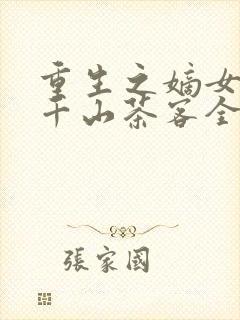 重生之嫡女
千山茶客全
張家國